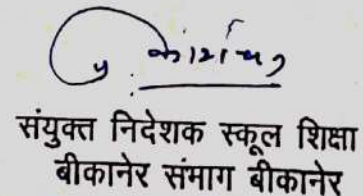 संयुक्त निदेशक स्कूल शिक्षा
बीकानेर संभाग बीकानेर